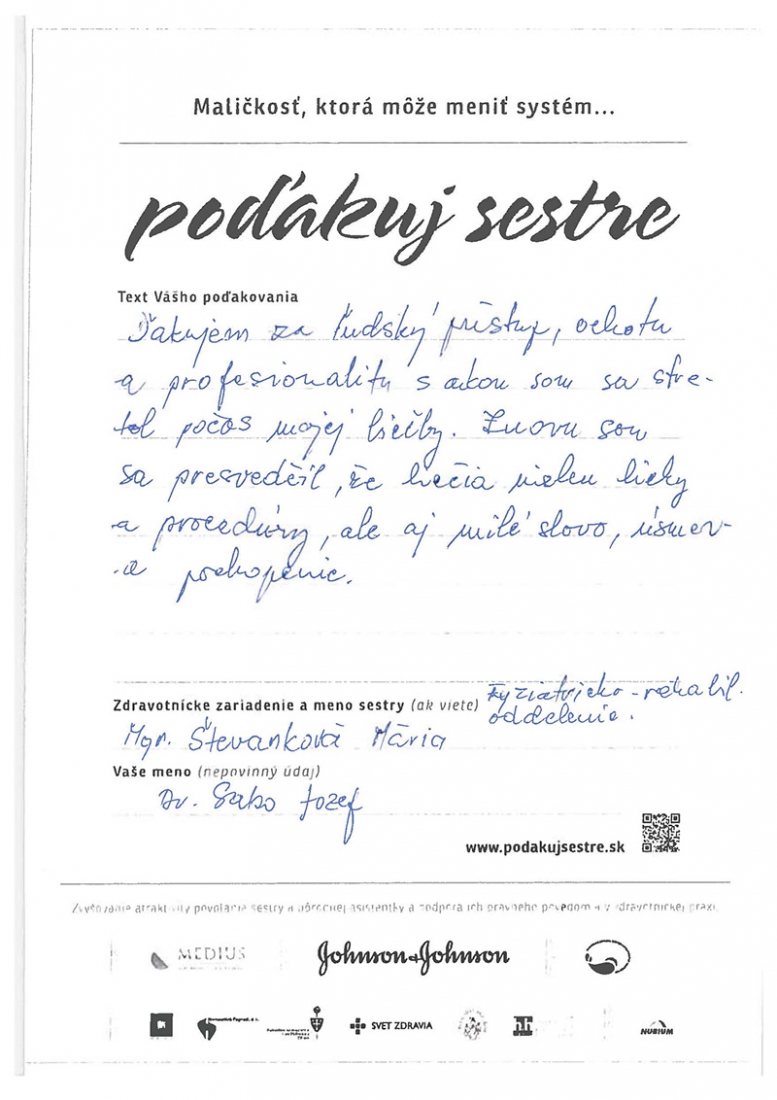 Maličkosť, ktorá môže meniť systém...
poďakuj sestre
Text Vášho poďakovania
Ďakujem za ľudský prístup, ochotu
a profesionalitu s akou som sa stre-
tol počas mojej liečby. Znovu som
sa presvedčil, že liečia nielen lieky
a procedúry, ale aj milé slovo, úsmev
a pochopenie.
Zdravotnícke zariadenie a meno sestry (ak viete) Fyziatricko-rehabil.
oddelenie.
Mgr. Števanková Mária
Vaše meno (nepovinný údaj)
Dr. Sako Jozef
www.podakujsestre.sk
Zvyšovanie atraktivity povolania sestry a pôrodnej asistentky a podpora ich právneho povedomia v zdravotníckej praxi.
MEDIUS
Johnson & Johnson
SVET ZDRAVIA
NUBIUM